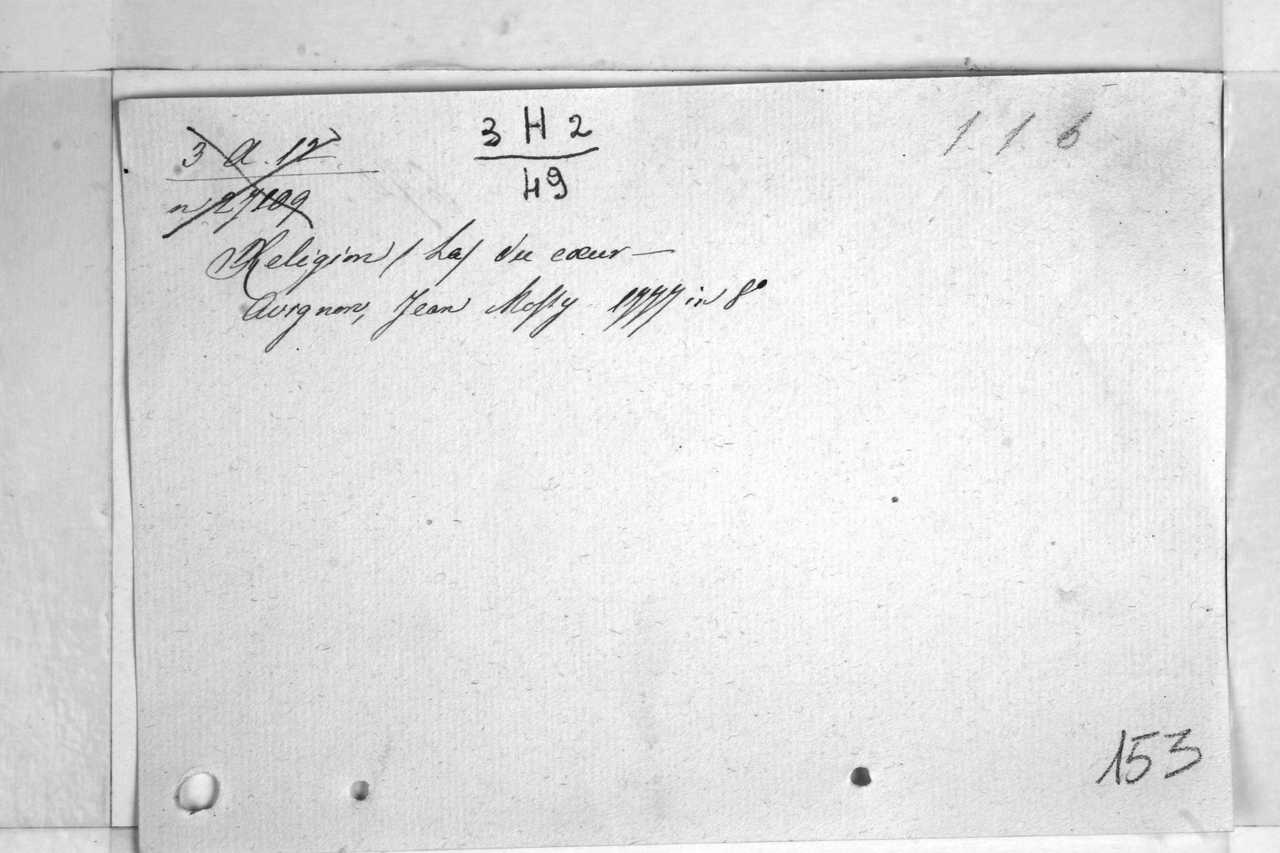 3 a. 12
n 27109
3 H 2
49
1. 1. 6
Religion / La / du cœur —
Avignon, Jean Mossy 1777 in 8°
153